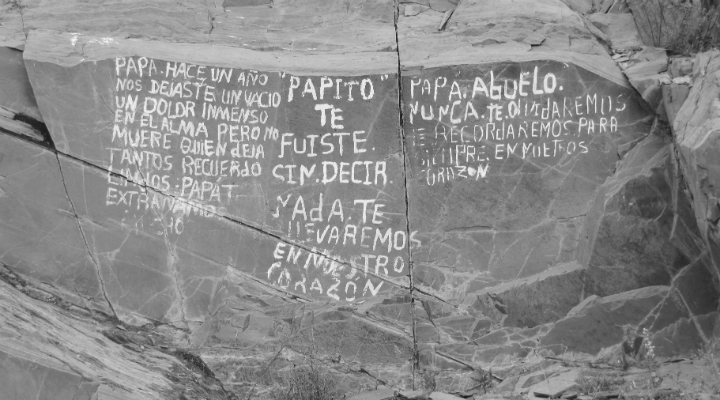 PAPA. HACE UN AÑO
NOS DEJASTE UN VACIO
UN DOLOR INMENSO
EN EL ALMA PERO NO
MUERE QUIEN DEJA
TANTOS RECUERDO
LINDOS. PAPA T
EXTRAÑAMOS
"PAPITO"
TE
FUISTE.
SIN.DECIR.
NAdA.TE
LLEVAREMOS
EN NUESTRO
CORAZÓN
PAPA. AbUELO.
NUNCA. TE. OlVIdAREMOS
TE RECORdAREMOS PARA
SIEMPRE. EN NUETROS
CORAZON